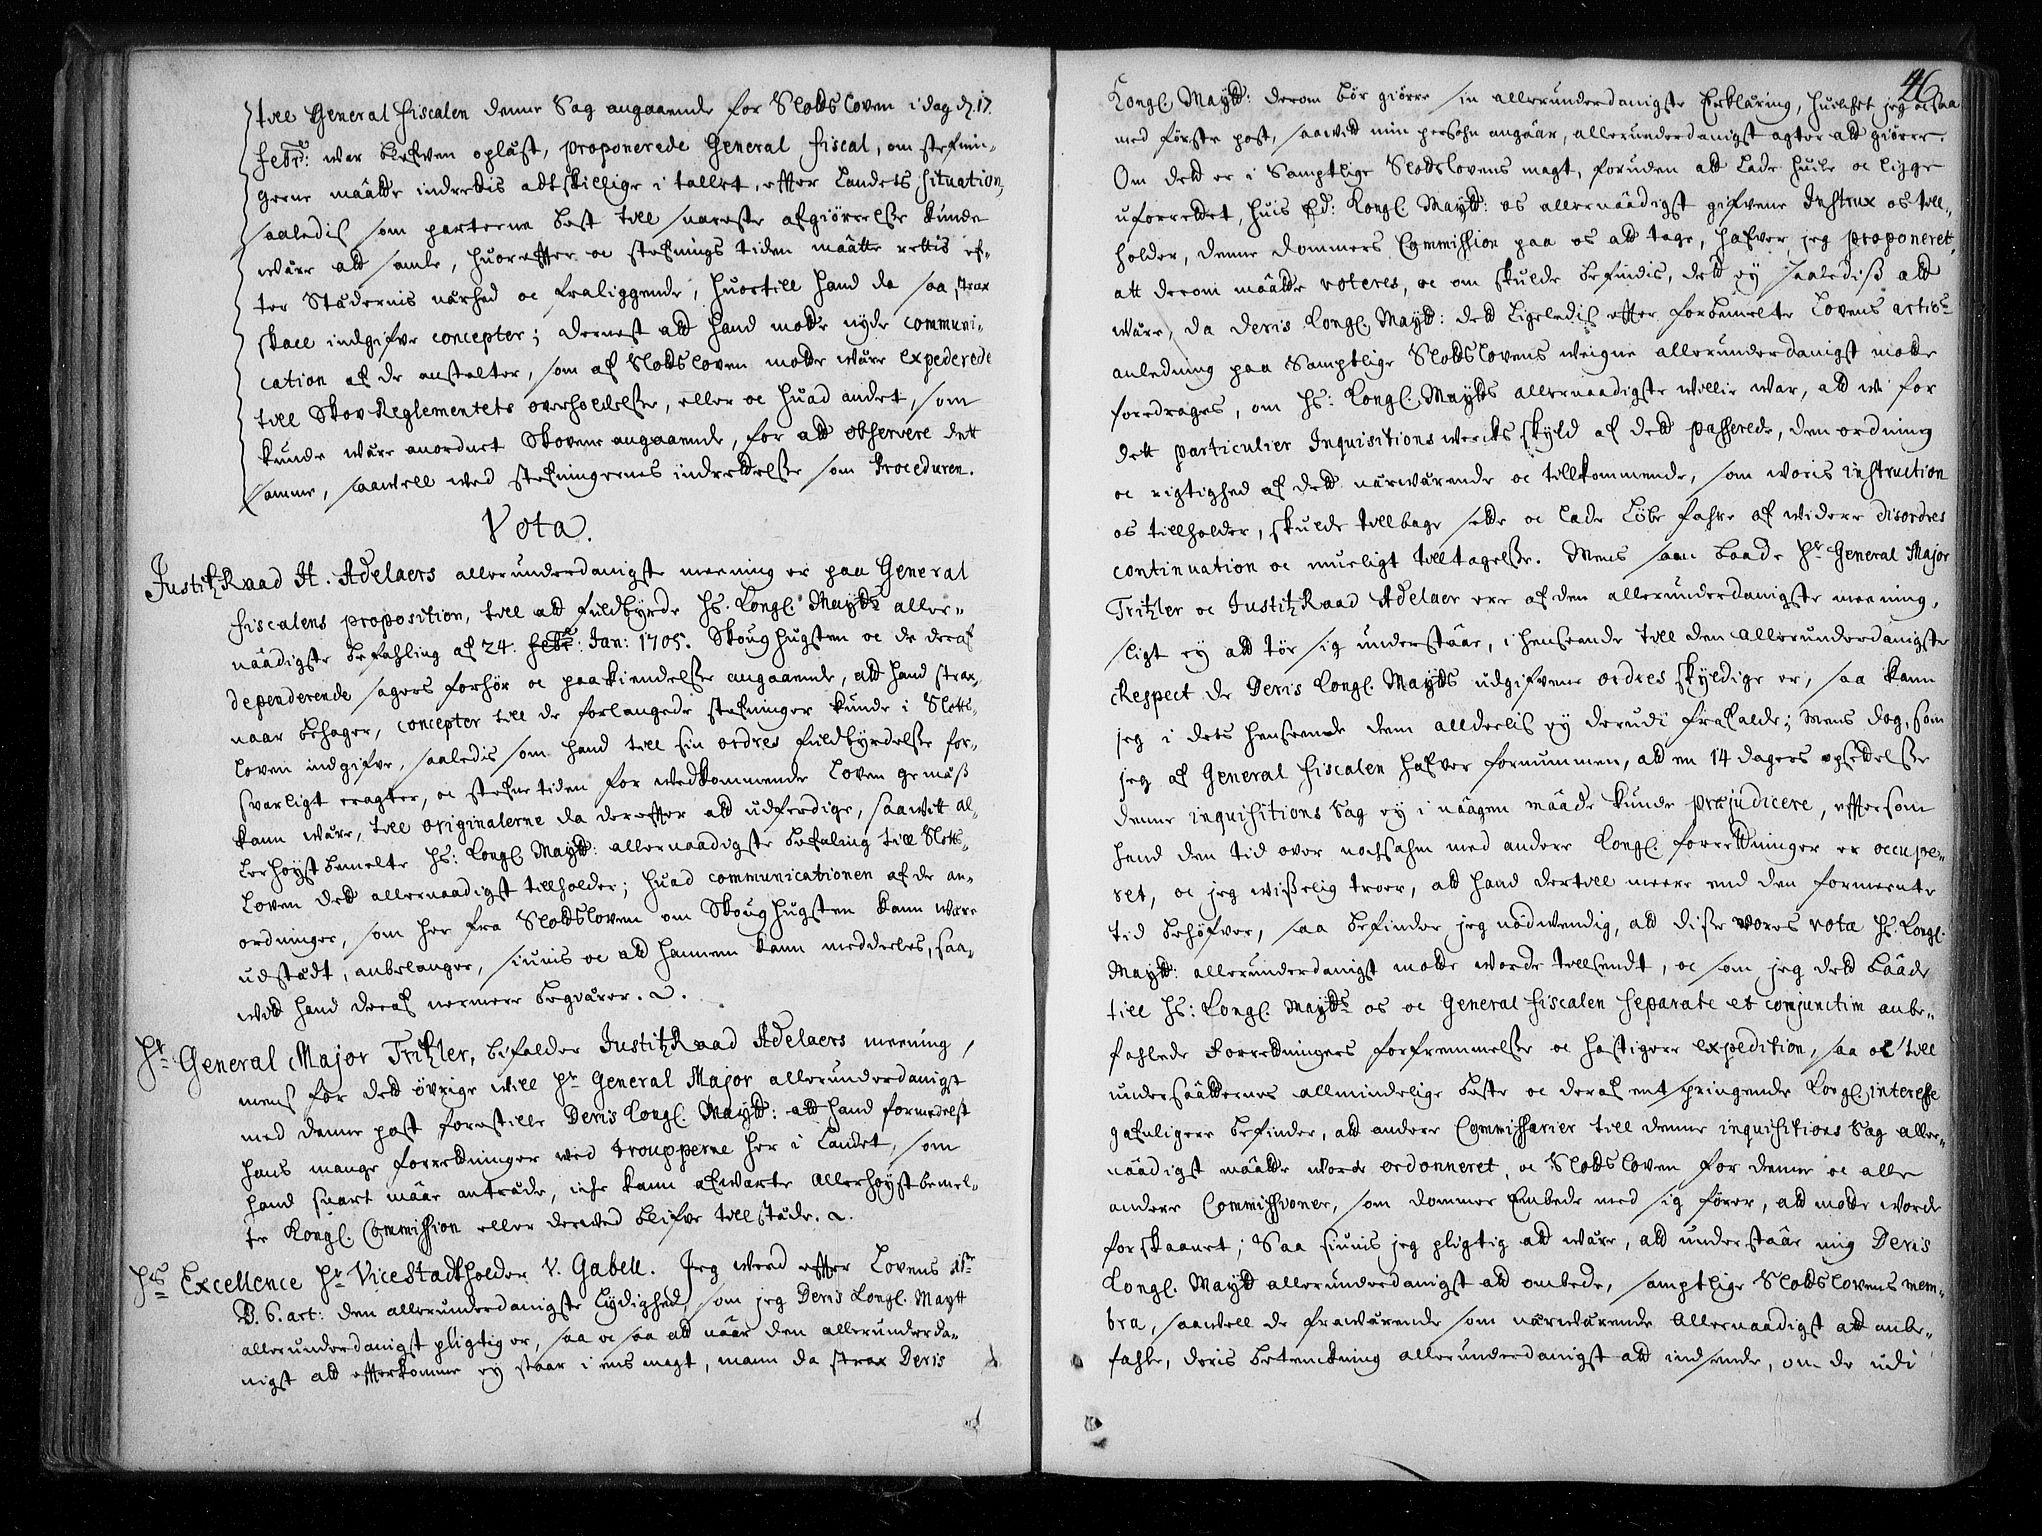 till General Fiscalen denne Sag angaaende for Slodsloven i dag d. 17.
Febr: war blefven oplæst, proponerede General Fiscal, om stefnin-
gerne maatte indrettis adtskillige i tallet, efter Landets situation,
saaledis som parterne best till snareste afgiørelse kunde
være att samle, huorefter oc stefnings tiden maatte rettis ef-
ter Stædernis nærhed oc fraliggende, huortill hand da saa strax
skall indgifve concepter; dernest att hand motte nyde communi-
cation af de anstalter, som af Slodsloven motte være expederede
till Skov-Reglementets overholdelsse, eller oc huad andet, som
kunde være anordnet Skovene angaaende, for att observere dett
samme, saavell ved stefningernes indrettelsse som Proceduren.
Vota.
JustitzRaad H. Adelaers allerunderdanigste meening er paa General
Fiscalens proposition, till att fuldbyrde Hs. Kongl. Maytts aller-
naadigste befahling af 24. Febr: Jan: 1705. Skoug hugsten oc de deraf
dependerende sagers forhør oc paakiendelsse angaaende, att hand strax,
naar behager, concepter till de forlangede stefninger kunde i Slotts-
loven indgifve, saaledis som hand till sin ordres fuldbyrdelsse for-
svarligt eragter, oc stefne tiden for vedkommende Loven gemæss
kann være, till originalerne da derefter att udferdige, saavitt al-
lerhøystbemelte Hs: Kongl. Maytt: allernaadigste befaling till Slotts-
Loven dett allernaadigst tillholder; huad communicationen af de an-
ordninger, som her fra Slodsloven om Skoughugsten kann være
udstædt, anbelanger, siunis oc att hannem kann meddeeles, saa-
vitt hand deraf nermere begiærer.
Hr General Major Tritzler, bifalder JustitzRaad Adelaers meening,
mens for dett øvrige will Hr General Major allerunderdanigst
med denne post forestille Deris Kongl. Maytt: att hand formedelst
hans mange forretninger ved trouppene her i Landet, som
hand snart maae antræde, iche kann afwarte Allerhøystbemel-
te Kongl. Commission eller derved blifve tilstæde.
Hs Excellence Hr ViceStadtholder V. Gabell. Jeg veed efter Lovens 1ste
B. 6. art: den allerunderdanigste Lydighed, som jeg Deris Kongl. Maytt
allerunderdanigst pligtig er, saa oc saa att naar den allerunderda-
nigst att efterkomme ey staar i ens magt, mann da strax Deris
46
Kongl. Maytt: derom bør giøre sin allerunderdanigste Erklæring, huilchet jeg oc saa
med første post, saavitt min persohn angaar, allerunderdanigst agter att giøre.
Om dett er i Samptlige Slodslovens magt, foruden att lade huile oc ligge
uforrettet, huis Hs: Kongl. Maytt: os allernaadigst gifvene Instrux os till-
holder, denne Dommers Commission paa os att tage, hafver jeg proponeret,
att derom maatte voteres, oc om skulde befindis, dett ey saalediss att
være, da Deris Kongl. Maytt: dett ligeledis efter forbemelte Lovens articls
anledning paa Samptlige Slodslovens weigne allerunderdanigst motte
foredrages, om Hs: Kongl. Maytts allernaadigste willie war, att wi for
dett particulier Inquisitions werks skyld af dett passerede, den ordning
oc rigtighed af dett nærwærende oc tillkommende, som woris instruction
os tillholder, skulde tillbage sette oc lade løbe fahre af widere disordres
continuation oc mueligt tilltagelsse. Mens saa baade Hr General Major
Tritzler oc JustitzRaad Adelaer ere af den allerunderdanigste meening,
sligt ey att tør sig understaae, i henseende till den Allerunderdanigste
Respect de Deris Kongl. Maytts udgifvene ordres skyldige er, saa kann
jeg i dets henseende dem alldeelis ey derudi frafalde; Mens dog, som
jeg af General Fiscalen hafver fornummen, att en 14 dagers opsettelsse
denne inquisitions Sag ey i naagen maade kunde præjudicere, eftersom
hand den tid over nochsahm med andere Kongl. forretninger er occupe-
ret, oc jeg wisselig troer, att hand dertill meere end den formeente
tid behøfver, saa befinder jeg nødwendig, att disse wores vota Hs. Kongl.
Maytt: allerunderdanigst motte worde tillsendt, oc som jeg dett baade
till Hs: Kongl. Maytts os oc General Fiscalen separate et conjunctim anbe-
fahlede forretningers forfremmelsse oc hastigere expedition, saa oc till
undersaatternes allmindelige beste oc deraf entspringende Kongl. interesse
gafnligere befinder, att andere Commissarier till denne inquisitions Sag aller-
naadigst maatte worde ordonneret, oc Slodsloven for denne oc alle
andere Commissioner, som dommer Embede med sig fører, att motte worde
forskaanet; Saa siunis jeg pligtig att være, att understaae mig Deris
Kongl. Maytt allerunderdanigst att ombede, samptlige Slodslovens mem-
bra, saavell de frawærende som nærwærende Allernaadigst att anbe-
fahle, deris betenckning allerunderdanigst att indsende, om de udi